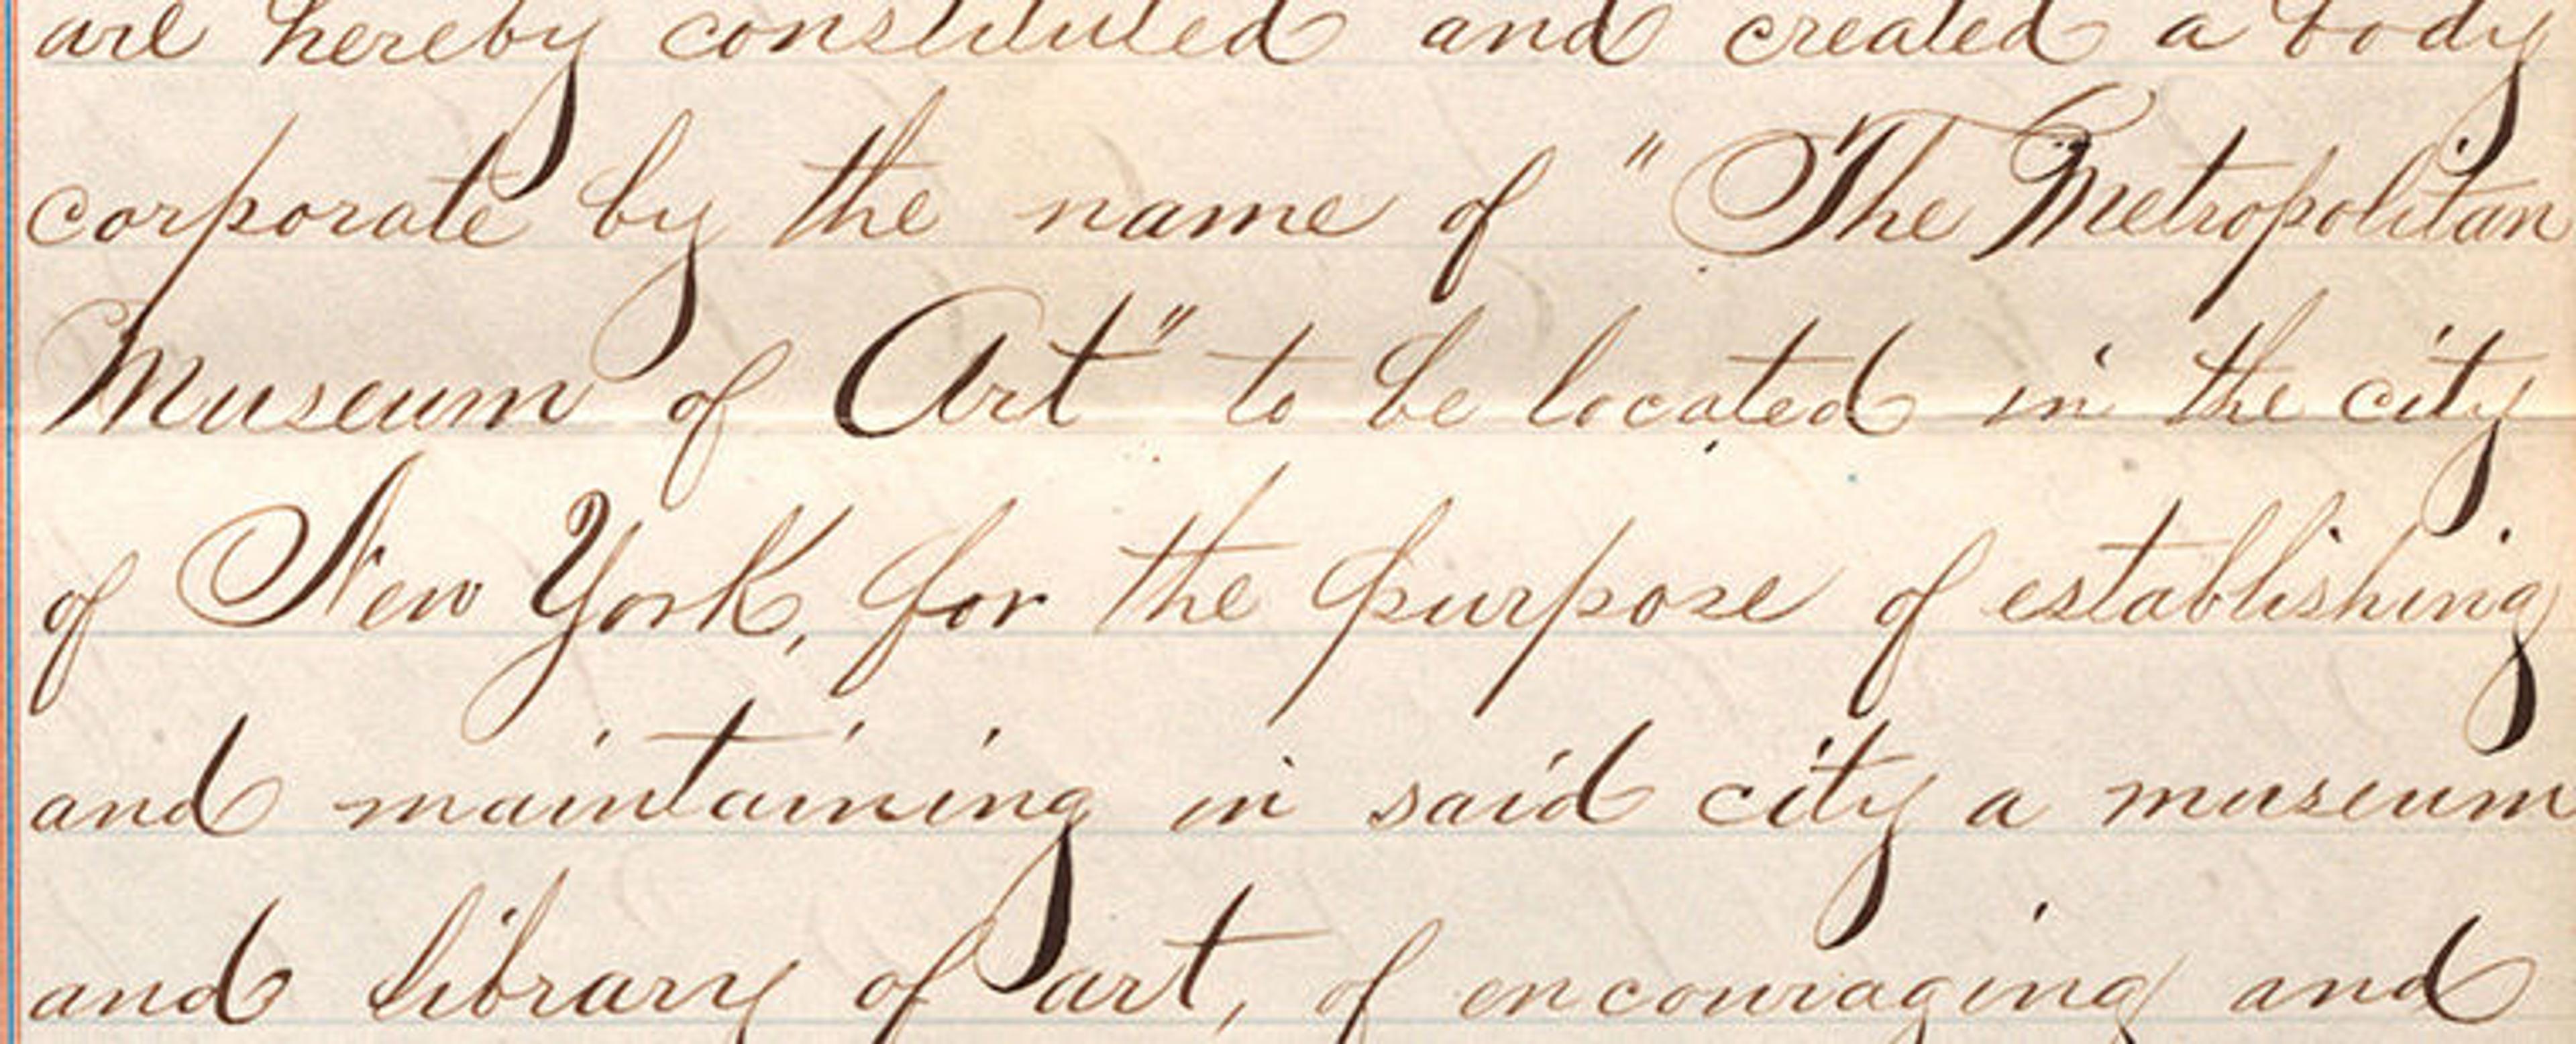 are hereby constituted and created a body
corporate by the name of "The Metropolitan
Museum of Art" to be located in the city
of New York, for the purpose of establishing
and maintaining in said city a museum
and library of art, of encouraging and